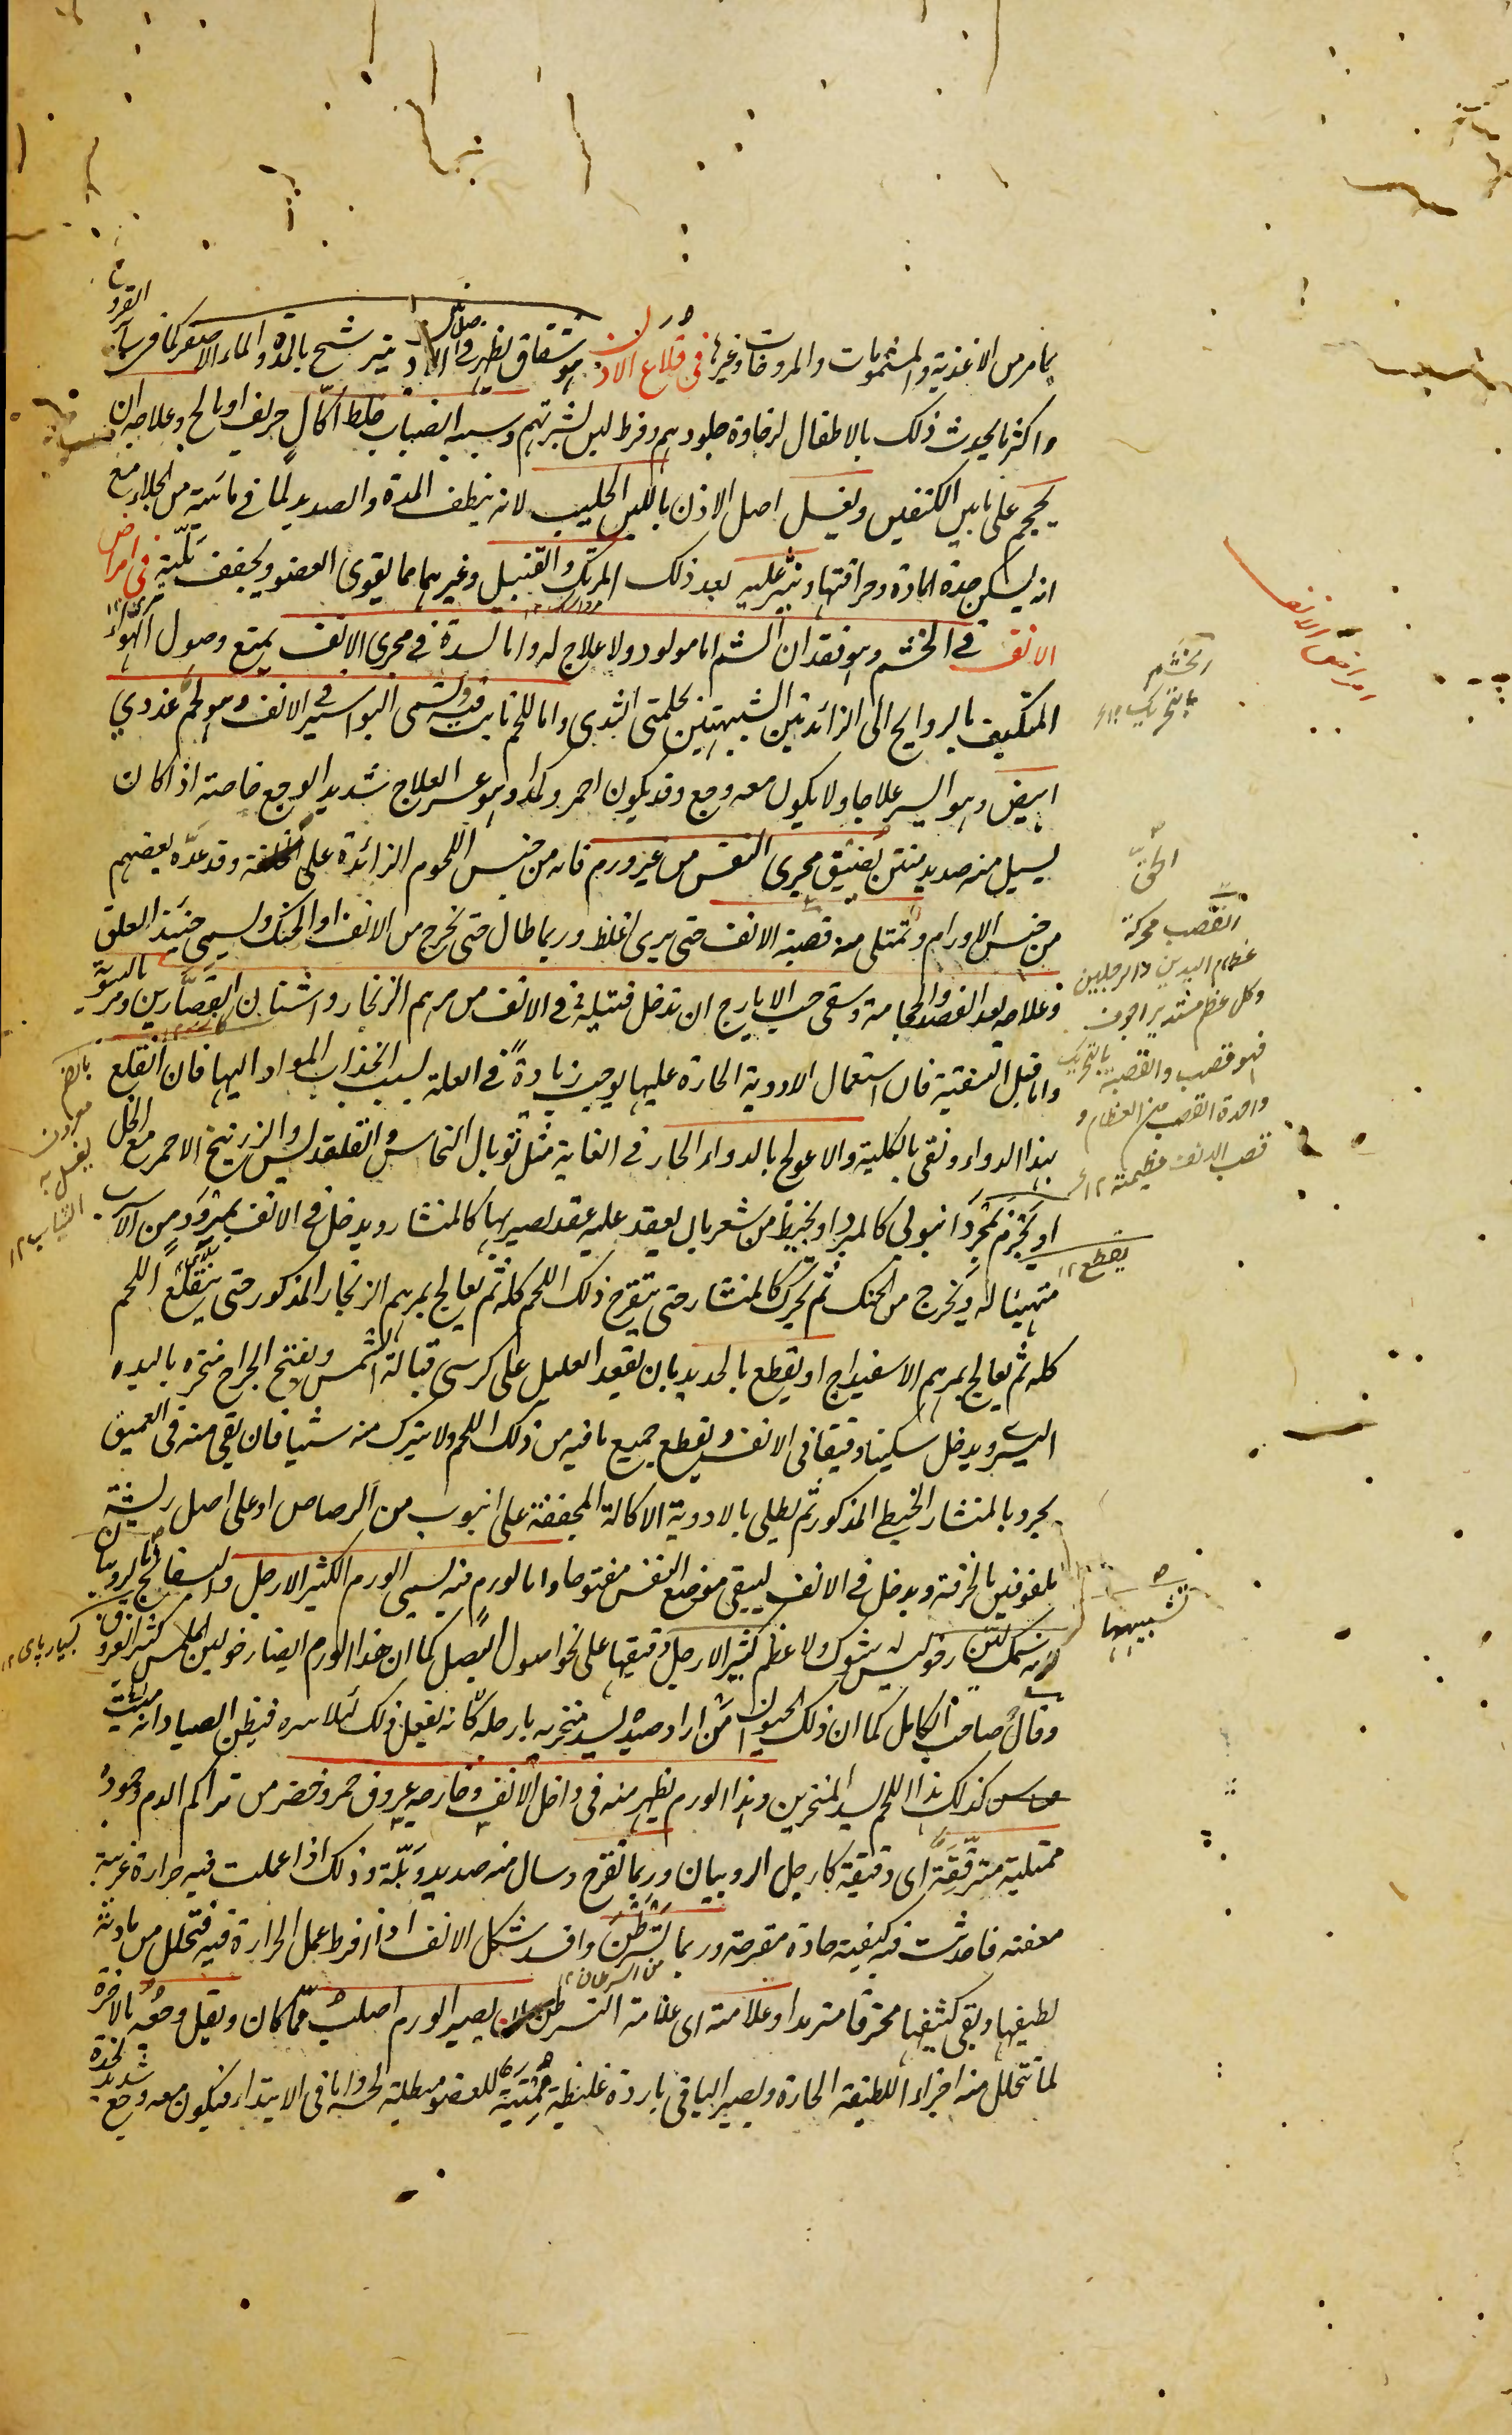 بما مر من الاغذية والمشمومات والمروخات وغيرها فى قلاع الاذن هو شقاق يظهر فى اصل الاذن يترشح بالمدة والماء الاصفر كما فى سائر القروح
واكثر ما يحدث ذلك بالاطفال لرخاوة جلودهم وفرط لين بشرتهم وسببه انصباب خلط اكّال حريف او مالح وعلاجه ان
يحجم على ما بين الكتفين ويغسل اصل الاذن باللبن الحليب لانه ينظف المدة والصديد لما فى مائيته من الجلاء مع
انه يسكن حدة المادة وحرافتها وينثر عليه بعد ذلك المرتك والقنبيل وغيرهما مما يقوى العضو ويجفف بَلّته فى امراض
الانف فى الخشم وهو فقدان الشم اما مولود ولا علاج له واما لسدة فى مجرى الانف يمنع وصول الهواء
المتكيف بالروايح الى الزائدتين الشبيهتين بحلمتى الثدى واما للحم نابت فيه ويسمى البواسير فى الانف وهو لحم غددي
ابيض وهو ايسر علاجا ولا يكون معه وجع وقد يكون احمر وكمدا وهو عسر العلاج شديد الوجع خاصة اذا كان
يسيل منه صديد منتن يُضَيِّق مجرى النفس من غير ورم فانه من جنس اللحوم الزائدة على الخلقة وقد عدّه بعضهم
من جنس الاورام وتمتلى منه قصبة الانف حتى يرى اغلظ وربما طال حتى يخرج من الانف او الحنك ويسمى حينئذ العلق
وعلاجه بعد الفصد والحجامة وسقى حب الايارج ان تدخل فتيلة فى الانف من مرهم الزنجار واشنان القصّارين ومر بالسوية
واما قبل التنقية فان استعمال الادوية الحارة عليها يوجب زيادةً فى العلة لسبب انجذاب المواد اليها فان انقلع
بهذا الدواء ونقى بالكلية والا عولج بالدواء الحار فى الغاية مثل توبال النحاس والقلقديس والزرنيخ الاحمر مع الخل
او يُخرم بمجرد انبوبي كالمبرد او بخيط من شعر بان يعقد عليه عقد يصير بها كالمنشار ويدخل فى الانف بمِرْوَد من الآسرب
متهيئا له ويُخرج من الحنك ثم يُحرّك كالمنشار حتى يتقرح ذلك اللحم كله ثم يعالج بمرهم الزنجار المذكور حتى ينقلع اللحم
كله ثم يعالج بمرهم الاسفيداج او يقطع بالحديد بان يقعد العليل على كرسى قبالة الشمس ويفتح الجراح منخره باليده
اليسرى ويدخل سكينا دقيقا فى الانف ويقطع جميع ما فيه من ذلك اللحم ولا يترك منه شيئا فان بقى منه فى العميق
يجرد بالمنشار الخيط المذكور ثم يطلى بالادوية الاكالة المجففة على انبوب من الرصاص او على اصل ريشة
ملفوفين بالخرقة ويدخل فى الانف ليبقى موضع النفس مفتوحا واما لورم فيه يسمى الورم الكثير الارجل والبسفايج اما لروبيان
سمك لين رخو ليس له شوك ولا عظم كثير الارجل دقيقها على نحو اصول البصل كما ان هذا الورم ايضا رخو لين الملمس كثير العروق
وقال صاحب الكامل كما ان ذلك الحيوان مَن اراد صيده يسد منخريه بارجله كانه يفعل ذلك لئلا فيظن الصياد انه ميت
كذلك هذا اللحم يسد المنخرين وهذا الورم يظهر منه فى داخل الانف وخارجه عروق حمر وخضر من تراكم الدم وجموده
ممتلية مترققة اى دقيقة كارجل الروبيان وربما تقرح وسال منه صديد وبَلّة وذلك اذا عملت فيه حرارة غريبة
معفنة فاحدثت فيه كيفية حادة مقرحة وربما تسرطن وافسد شكل الانف اذا افرط عمل الحرارة فيه فتحلل من مادته
لطيفها وبقى كثيفها محترقا متربدا وعلامته اى علامة التسرطن ان يصير الورم اصلب مما كان ويقل وجعه بالاخرة
لما تتحلل منه اجزاء اللطيفة الحارة ويصير الباقى باردة غليظة مميتة للعضو مبطلة لحسه واما فى الابتداء فيكون معه وجع شديد لحدة
امراض الانف
الخشم
بالتحريك ۱۲
القصب محركة
عظام اليدين والرجلين
وكل عظم مستدير اجوف
فهو قصب والقصبة بالتحريك
واحدة القصب من العظام و
قصب الانف عظمته ۱۲
يقطع ۱۲
تشبيهها
يغسل به
الثياب ۱۲
بسيار پاى ۱۲
من السرطان ۱۲